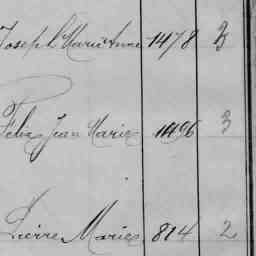 Joseph Marie Anne 1478 3
Felix Jean Marie 1496 3
Pierre Marie 814 2